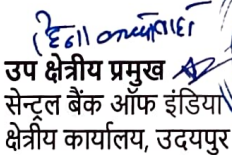 उप क्षेत्रीय प्रमुख
सेन्ट्रल बैंक ऑफ इंडिया
क्षेत्रीय कार्यालय, उदयपुर